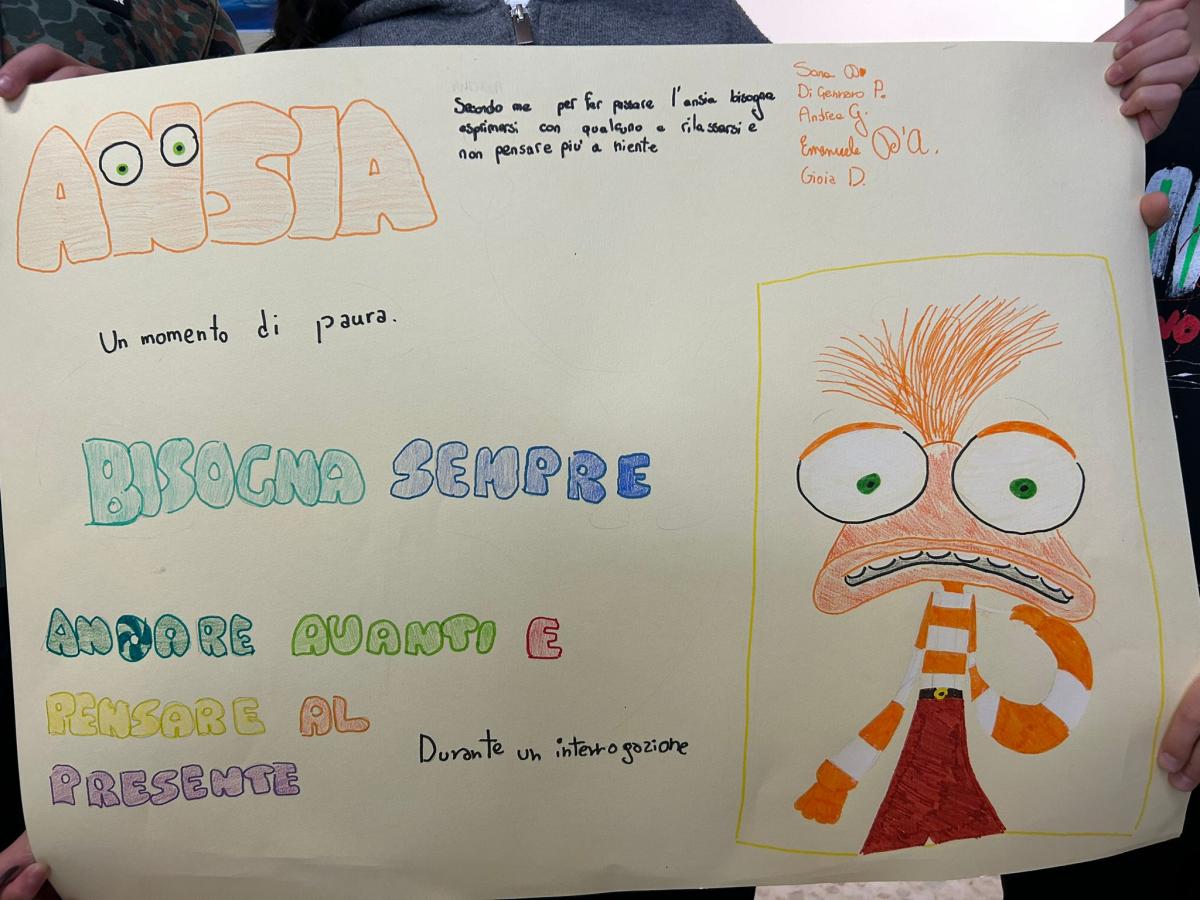 ANSIA
Secondo me per far passare l'ansia bisogna
esprimersi con qualcuno e rilassarsi e
non pensare piu' a niente
Sara D.
Di Gennaro P.
Andrea G.
Emanuele D'A.
Gioia D.
Un momento di paura.
BISOGNA SEMPRE
ANDARE AVANTI E
PENSARE AL
PRESENTE
Durante un interrogazione